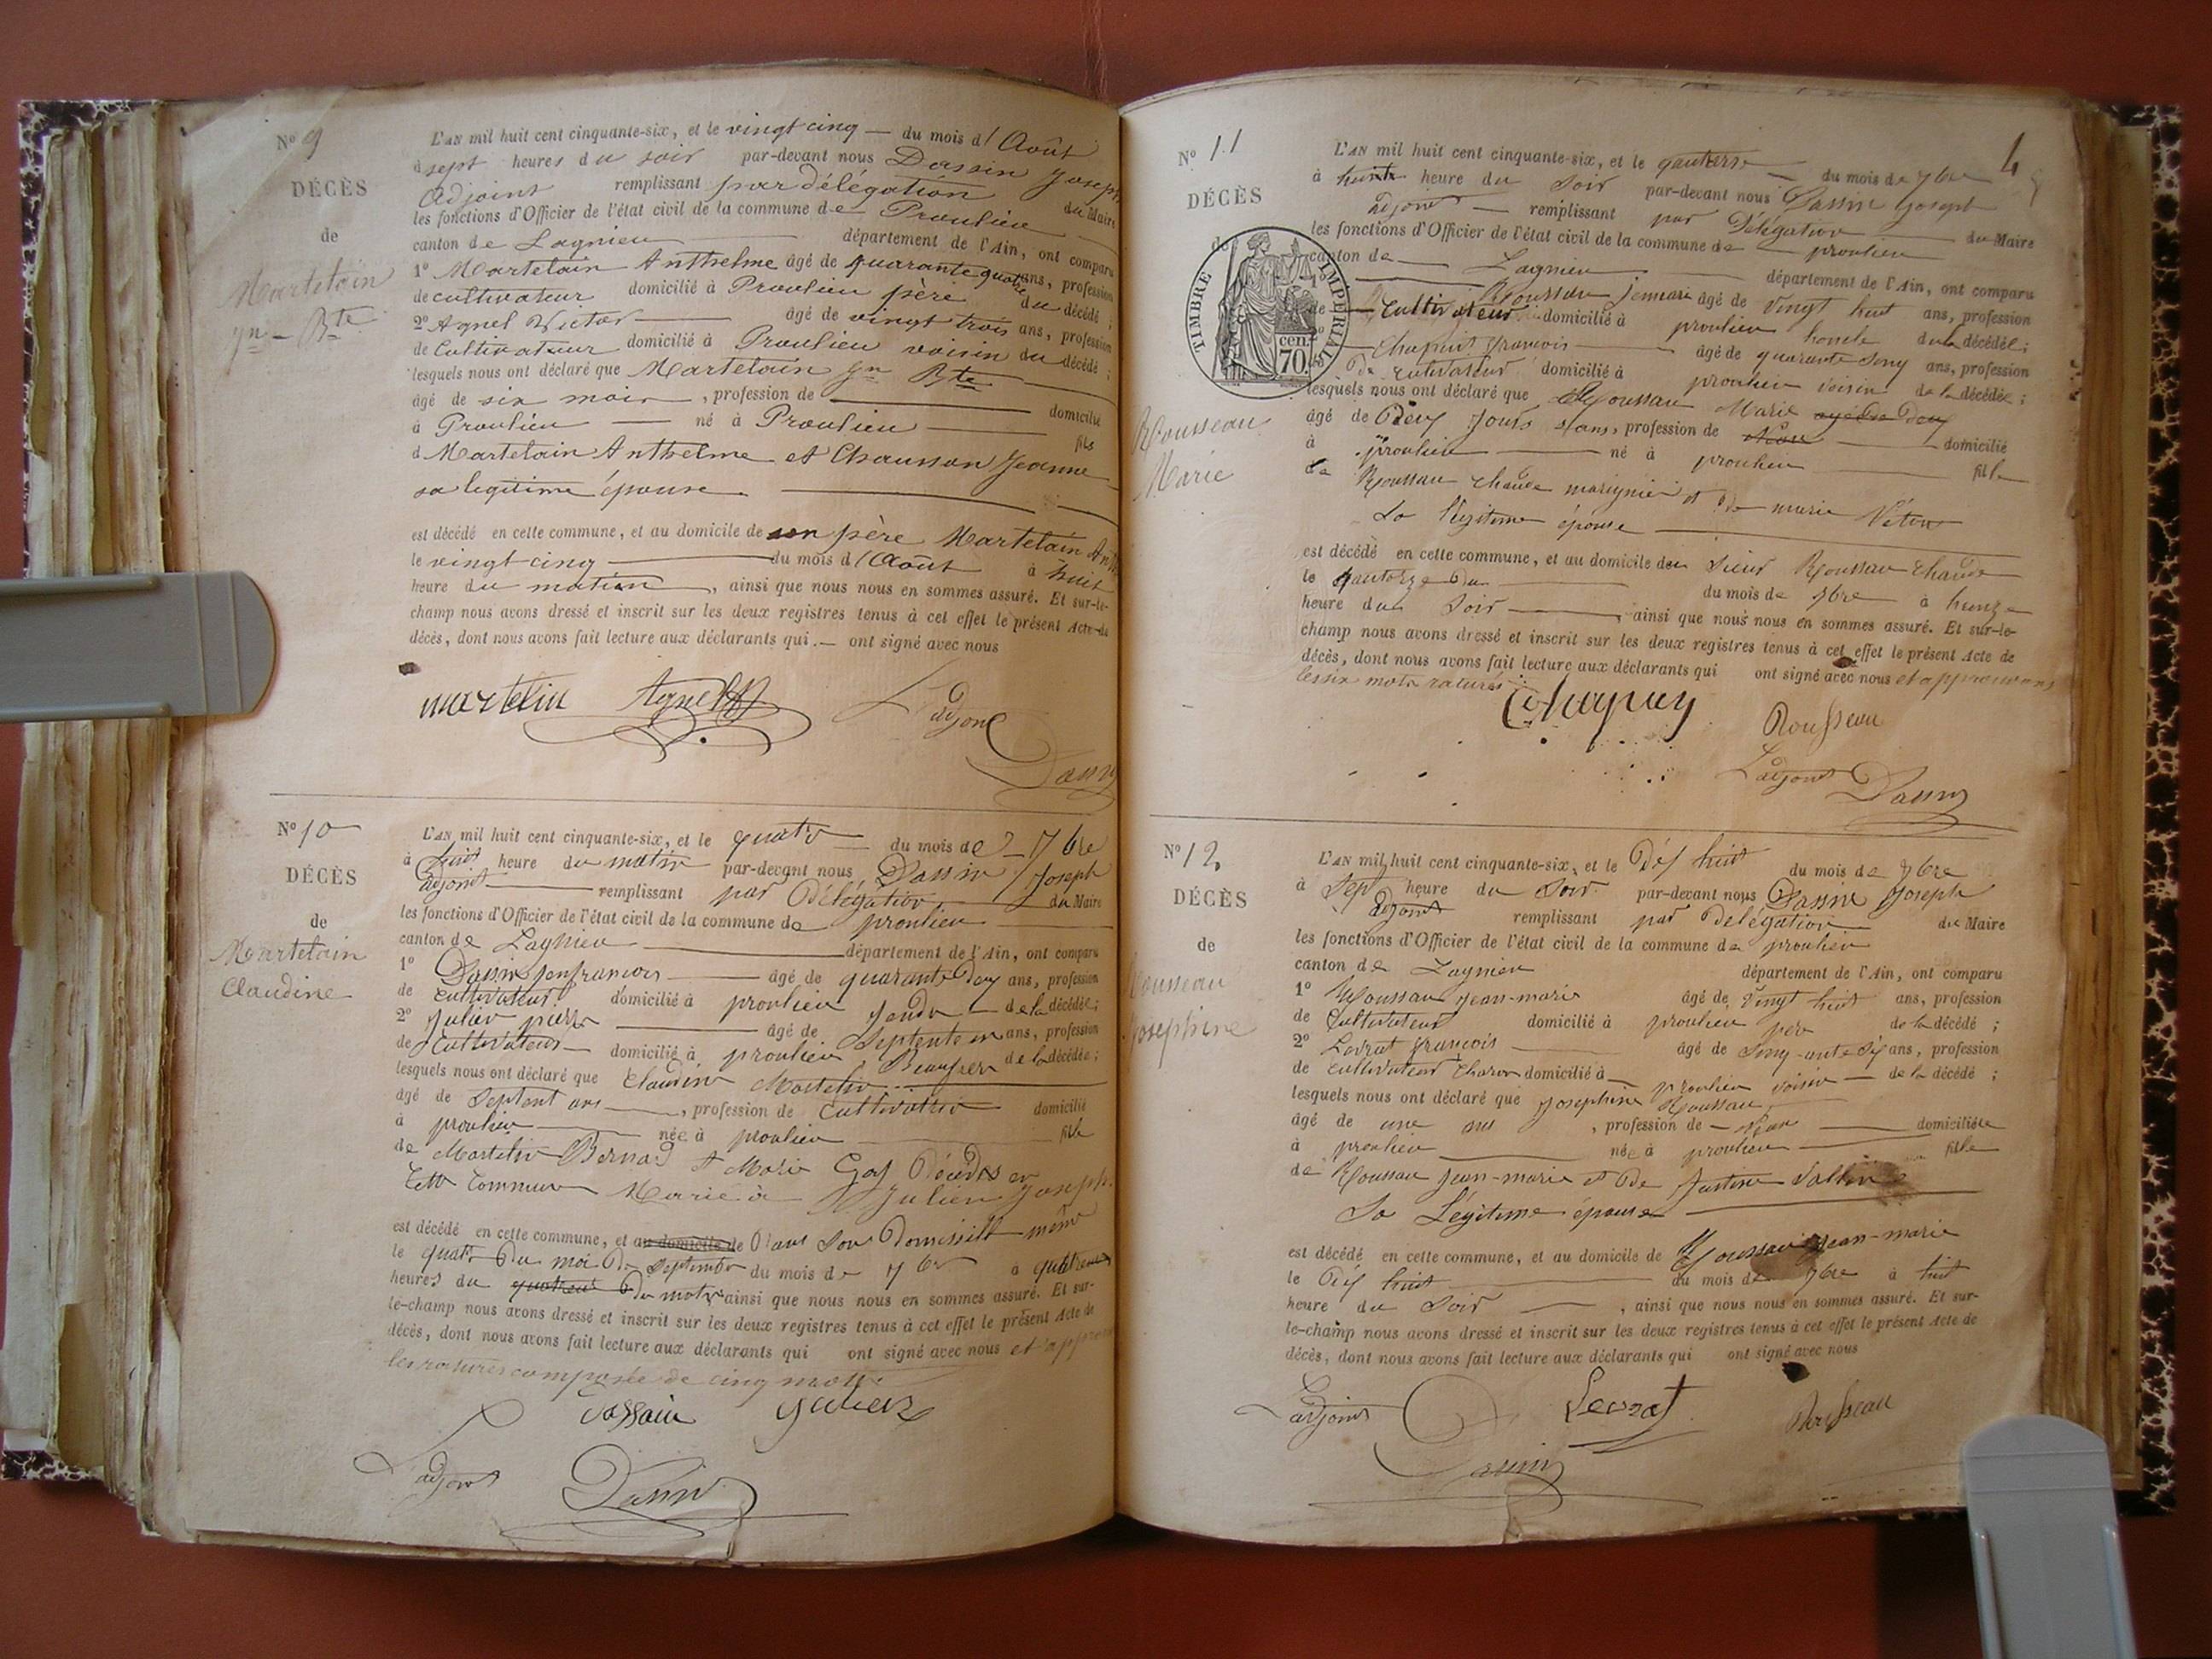 N° 9
DÉCÈS
de
Martelain
Jn - Bte
L'AN mil huit cent cinquante-six, et le vingt cinq — du mois d'Août
à sept heures du soir par-devant nous Dassin Joseph
Adjoint remplissant par délégation du Maire
les fonctions d'Officier de l'état civil de la commune de Proulieu
canton de Lagnieu département de l'Ain, ont comparu
1° Martelain Anthelme âgé de quarante quatre ans, profession
de cultivateur domicilié à Proulieu père du décédé ;
2° Agnel Victor âgé de vingt trois ans, profession
de Cultivateur domicilié à Proulieu voisin du décédé ;
lesquels nous ont déclaré que Martelain Jn Bte
âgé de six mois , profession de domicilié
à Proulieu né à Proulieu fils
d Martelain Anthelme et Chausson Jeanne
sa legitime épouse
est décédé en cette commune, et au domicile de son père Martelain
le vingt cinq du mois d'Août à huit
heure du matin , ainsi que nous nous en sommes assuré. Et sur-le-
champ nous avons dressé et inscrit sur les deux registres tenus à cet effet le présent Acte de
décès, dont nous avons fait lecture aux déclarants qui — ont signé avec nous
martelin Agnel L'adjoint
Dassin
N° 10
DÉCÈS
de
Martelain
Claudine
L'AN mil huit cent cinquante-six, et le quatre du mois de 7bre
à huit heure du matin par-devant nous Dassin Joseph
adjoint remplissant par Délégation du Maire
les fonctions d'Officier de l'état civil de la commune de proulieu
canton de Lagnieu département de l'Ain, ont comparu
1° Dassin âgé de quarante Deux ans, profession
de cultivateur domicilié à proulieu Jendre de la décédée ;
2° Julien pierre âgé de Septente un ans, profession
de cultivateur domicilié à proulieu Beaufrere de la décédée ;
lesquels nous ont déclaré que Claudine Martelin
âgé de Septent ans , profession de cultivatrice domicilié
à proulieu née à proulieu fille
de Martelin Bernard et Marie Décédés en
Cette Commune Mariée à Julien Joseph
est décédé en cette commune, et au domicile de Dans Son Domissille même
le quatre Du moi De Septembre du mois de 7bre à quatre
heures du du matin ainsi que nous nous en sommes assuré. Et sur-
le-champ nous avons dressé et inscrit sur les deux registres tenus à cet effet le présent Acte de
décès, dont nous avons fait lecture aux déclarants qui ont signé avec nous et
les ratures composée de cinq mots
Dassain Julien
L'adjoint Dassin
4
N° 11
DÉCÈS
de
TIMBRE IMPÉRIAL
70 cen.
Rousseau
Marie
L'AN mil huit cent cinquante-six, et le du mois de 7bre
à heure du Soir par-devant nous Dassin Joseph
adjoint remplissant par Délégation du Maire
les fonctions d'Officier de l'état civil de la commune de proulieu
canton de Lagnieu département de l'Ain, ont comparu
1° Roussau âgé de Vingt huit ans, profession
de Cultivateur domicilié à proulieu honcle de la décédée ;
2° Chapuis françois âgé de quarante ans, profession
de cultivateur domicilié à proulieu Voisin de la décédée ;
lesquels nous ont déclaré que Roussau Marie
âgé de Deux Jours ans, profession de domicilié
à proulieu né à proulieu fille
de Roussau Claude et De marie
Sa légitime épouse
est décédé en cette commune, et au domicile du Sieur Roussau Claude
le du mois de 7bre à
heure du Soir , ainsi que nous nous en sommes assuré. Et sur-le-
champ nous avons dressé et inscrit sur les deux registres tenus à cet effet le présent Acte de
décès, dont nous avons fait lecture aux déclarants qui ont signé avec nous et approuvons
les six mots raturés
Chapuy Rousseau
L'adjoint Dassin
N° 12
DÉCÈS
de
Rousseau
Josephine
L'AN mil huit cent cinquante-six, et le Dix huit du mois de 7bre
à Sept heure du Soir par-devant nous Dassin Joseph
adjoint remplissant par Délégation du Maire
les fonctions d'Officier de l'état civil de la commune de proulieu
canton de Lagnieu département de l'Ain, ont comparu
1° Roussau Jean-marie âgé de Vingt huit ans, profession
de Cultivateur domicilié à proulieu père de la décédé ;
2° Levrat françois âgé de ans, profession
de cultivateur Charon domicilié à proulieu voisin de la décédé ;
lesquels nous ont déclaré que Josephine Roussau
âgé de une , profession de domiciliée
à proulieu née à proulieu fille
de Roussau Jean-marie et De Justine
Sa Légitime épouse
est décédé en cette commune, et au domicile de Roussau Jean-marie
le Dix huit du mois de 7bre à huit
heure du Soir , ainsi que nous nous en sommes assuré. Et sur-
le-champ nous avons dressé et inscrit sur les deux registres tenus à cet effet le présent Acte de
décès, dont nous avons fait lecture aux déclarants qui ont signé avec nous
L'adjoint Levrat Rousseau
Dassin